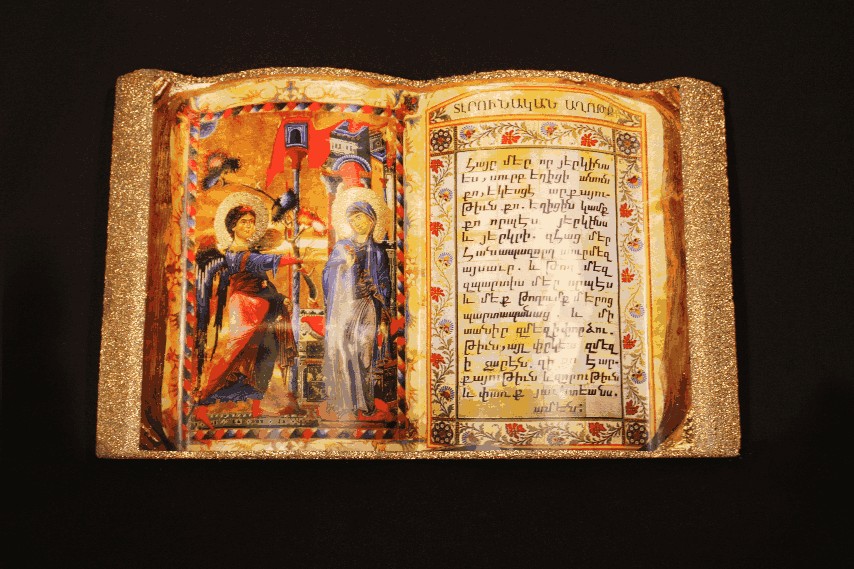 ՏԷՐՈՒՆԱԿԱՆ ԱՂՕԹՔ
Հայր մեր որ յերկինս
ես, սուրբ եղիցի անուն
քո, եկեսցէ արքայու-
թիւն քո. եղիցին կամք
քո որպէս յերկինս
և յերկրի. զհաց մեր
հանապազորդ տուր մեզ
այսաւր. և թող մեզ
զպարտիս մեր որպէս
և մեք թողումք մերոց
պարտապանաց. և մի
տանիր զմեզ ի փորձու.
թիւն, այլ փրկեա զմեզ
ի չարէն. զի քո է ար-
քայութիւն և զօրութիւն
և փառք յաւիտեանս.
ամէն: